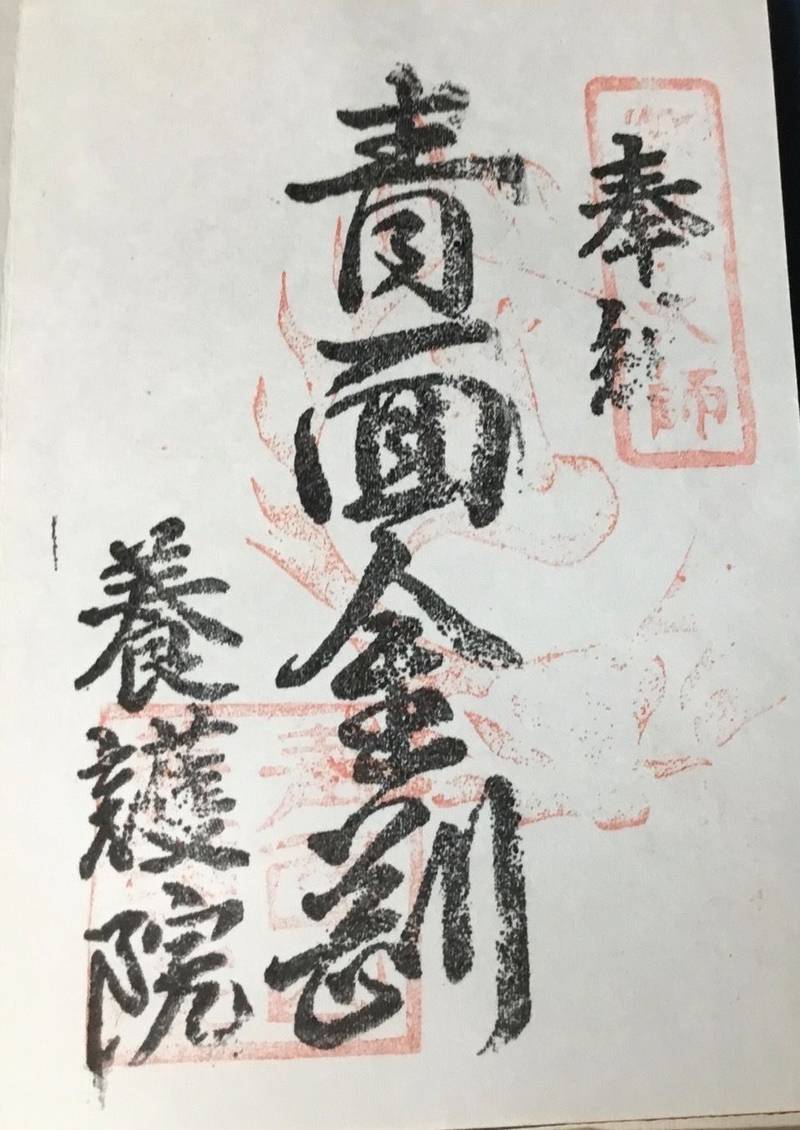 奉納
青面金剛
養護院
師